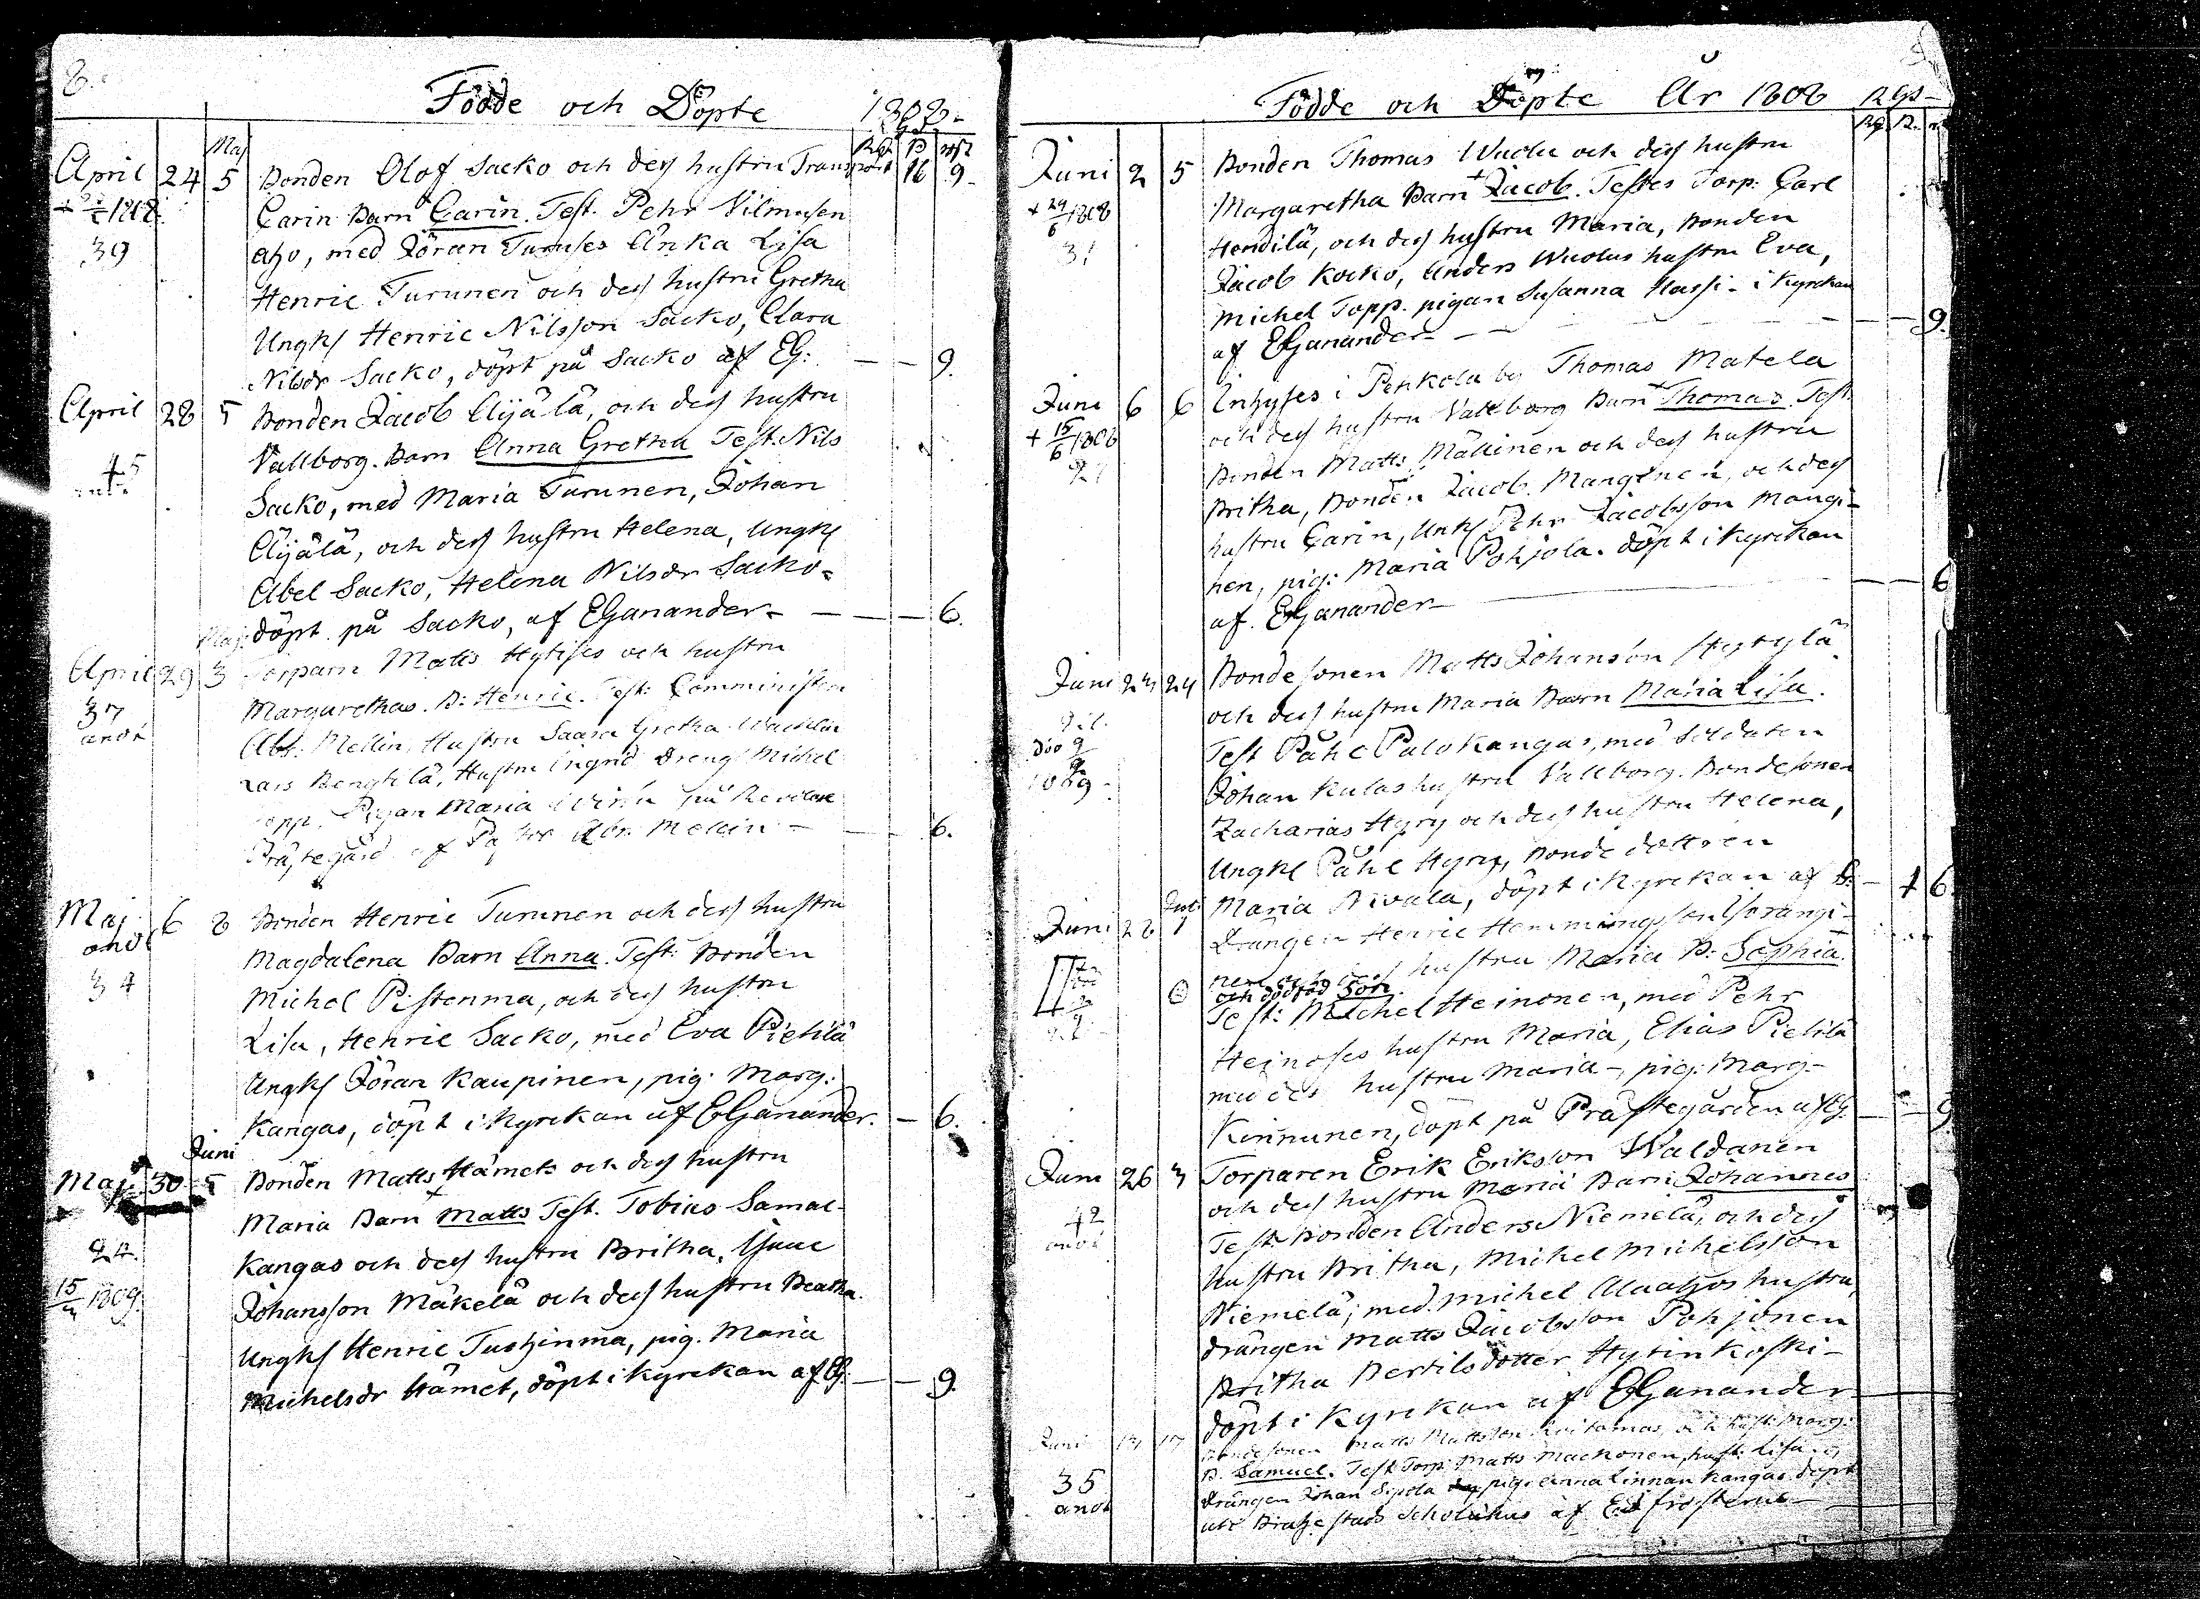 8.
Födde och Döpte 1808.
Maj
April 24 5 Bonden Olof Sacko och dess hustru Transport 16 9
Carin Barn Carin. Test. Pehr Vilmusen
39 aho, med Jöran Turuses Änka Lisa
Henric Turunen och dess hustru Gretha
Ungks Henric Nilsson Sacko, Clara
Nilsdr Sacko, döpt på Sacko af EG: — — 9.
April 28 5 Bonden Jacob Äijälä, och dess hustru
Vallborg. Barn Anna Gretha Test. Nils
45 Sacko, med Maria Turunen, Johan
Äijälä, och dess hustru Helena, Ungks
Abel Sacko, Helena Nilsdr Sacko-
döpt på Sacko, af EGanander- — — 6.
Maj:
April 29 3 Torparn Matts Hytises och hustru
37 Margarethas. B: Henric. Test: Comministern
Abr: Mellin, Hustru Saara Gretha
Lars Bengtilä, Hustru Ingrid Dreng Michel
Topp. Pigan Maria på
Prästegård af Abr. Mellin — 6.
Maj 6 8 Bonden Henric Turunen och dess hustru
Magdalena Barn Anna. Test: Bonden
34 Michel Pistenma, och dess hustru
Lisa, Henric Sacko, med Eva Pietilä
Ungks Jöran Kaupinen, pig: Marg:
Kangas, döpt i Kyrckan af EGanander. — 6.
Juni
Maj 30 5 Bonden Matts Hämet och dess hustru
Maria Barn Matts Test. Tobias Samal-
24. Kangas och dess hustru Britha, Isaac
15/3 1809. Johansson Mäkelä och dess hustru Beatha.
Ungks Henric Tushinma, pig. Maria
Michelsdr Hämet, döpt i Kyrckan af EG: — — 9.
Födde och Döpte År 1808 Rgs
Juni 2 5 Bonden Thomas Wuolu och dess hustru
+ 29/6 1808 Margaretha Barn Jacob. Testes Torp: Carl
31 Hendilä, och dess hustru Maria, Bonden
Jacob Kocko, Anders Wuolus hustru Eva,
Michel Topp. pigan Susanna Hassi- i Kyrckan
af EGanander- — — 9.
Juni 6 6 Inhyses i Penkola by Thomas Matela
+ 15/6 1808 och dess hustru Vallborg Barn Thomas. Test.
Bonden Matts Mällinen och dess hustru
Britha, Bonden Jacob. Manginen, och dess
hustru Carin, Unks Pehr Jacobsson Mangi-
nen, pig: Maria Pohjola. döpt i Kyrckan
af. EGanander — — 6
Juni 23 24 Bondesonen Matts Johanson Hyrylä
och dess hustru Maria Barn Maria Lisa.
Test Påhl Palokangas, med Soldaten
Johan Kulas hustru Vallborg. Bondesonen
Zacharias Hyry och dess hustru Helena,
Ungkl Påhl Hyry, Bonde dottren
Maria Nivala, döpt i Kyrckan af — 6.
Juli
Juni 28 1 Drängen Henric Hemmingsson
nen och dess hustru Maria B: Sophia
och dödfödd Son.
Test: Michel Heinonen, med Pehr
Heinoses hustru Maria, Elias Pietilä
med dess hustru Maria-, pig: Marg-
Kinnunen, döpt på Prästegården af EG. — — 9
Juni 26 3 Torparen Erik Eriksson Waldanen
och dess hustru Maria Barn Johannes
42 Test. Bonden Anders Niemelä, och dess
hustru Britha, Michel Michelsson
Niemelä, med Michel Alaahos hustru,
drängen Matts Jacobsson Pohjonen
Britha Bertilsdotter Hytinkoski-
döpt i Kyrckan af EGanander
Juni 13 17 Bondesonen Matts Mattsson och hust: Marg:
B. Samuel. Test Torp: Matts Mackonen, hust: Lisa.
35 Drängen Johan Sipola pig: Anna Linnankangas döpt
uti Brahestads af